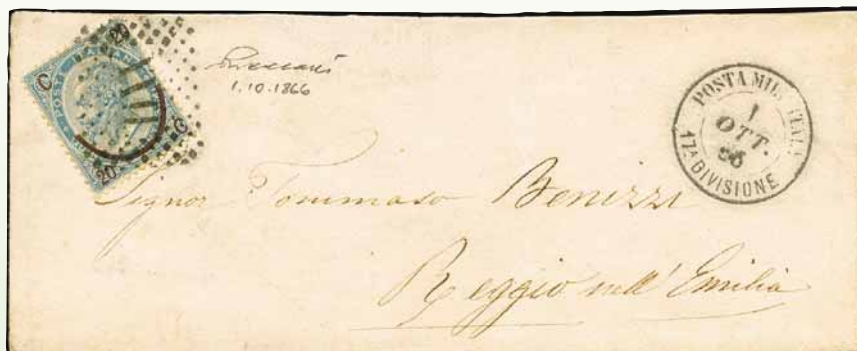 C 20
POSTA
C
20
1.10.1866
POSTA MIL. ITALI
1
OTT.
66
17A DIVISIONE
Signor Tommaso Benizzi
Reggio nell' Emilia